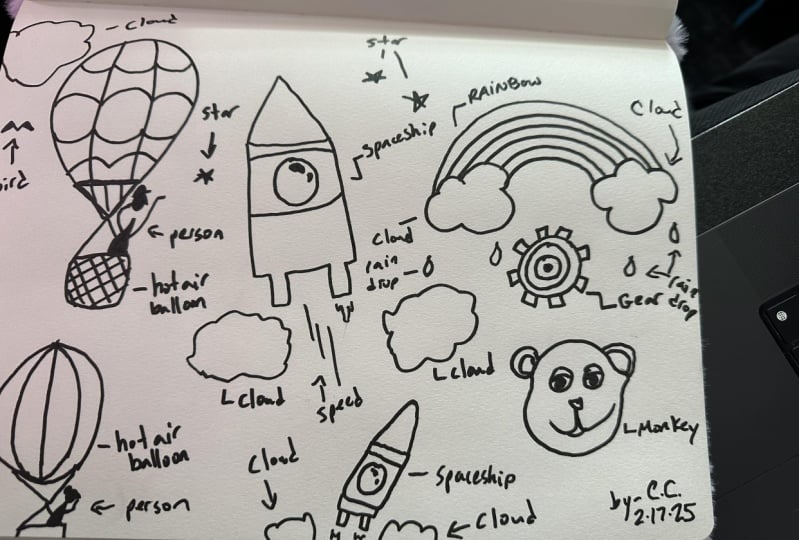 cloud
star
star
RAINBOW
Cloud
spaceship
bird
person
cloud
rain
drop
rain
drop
hot air
balloon
Gear
cloud
cloud
speed
Monkey
hot air
balloon
cloud
spaceship
person
cloud
by- C.C.
2.17.25